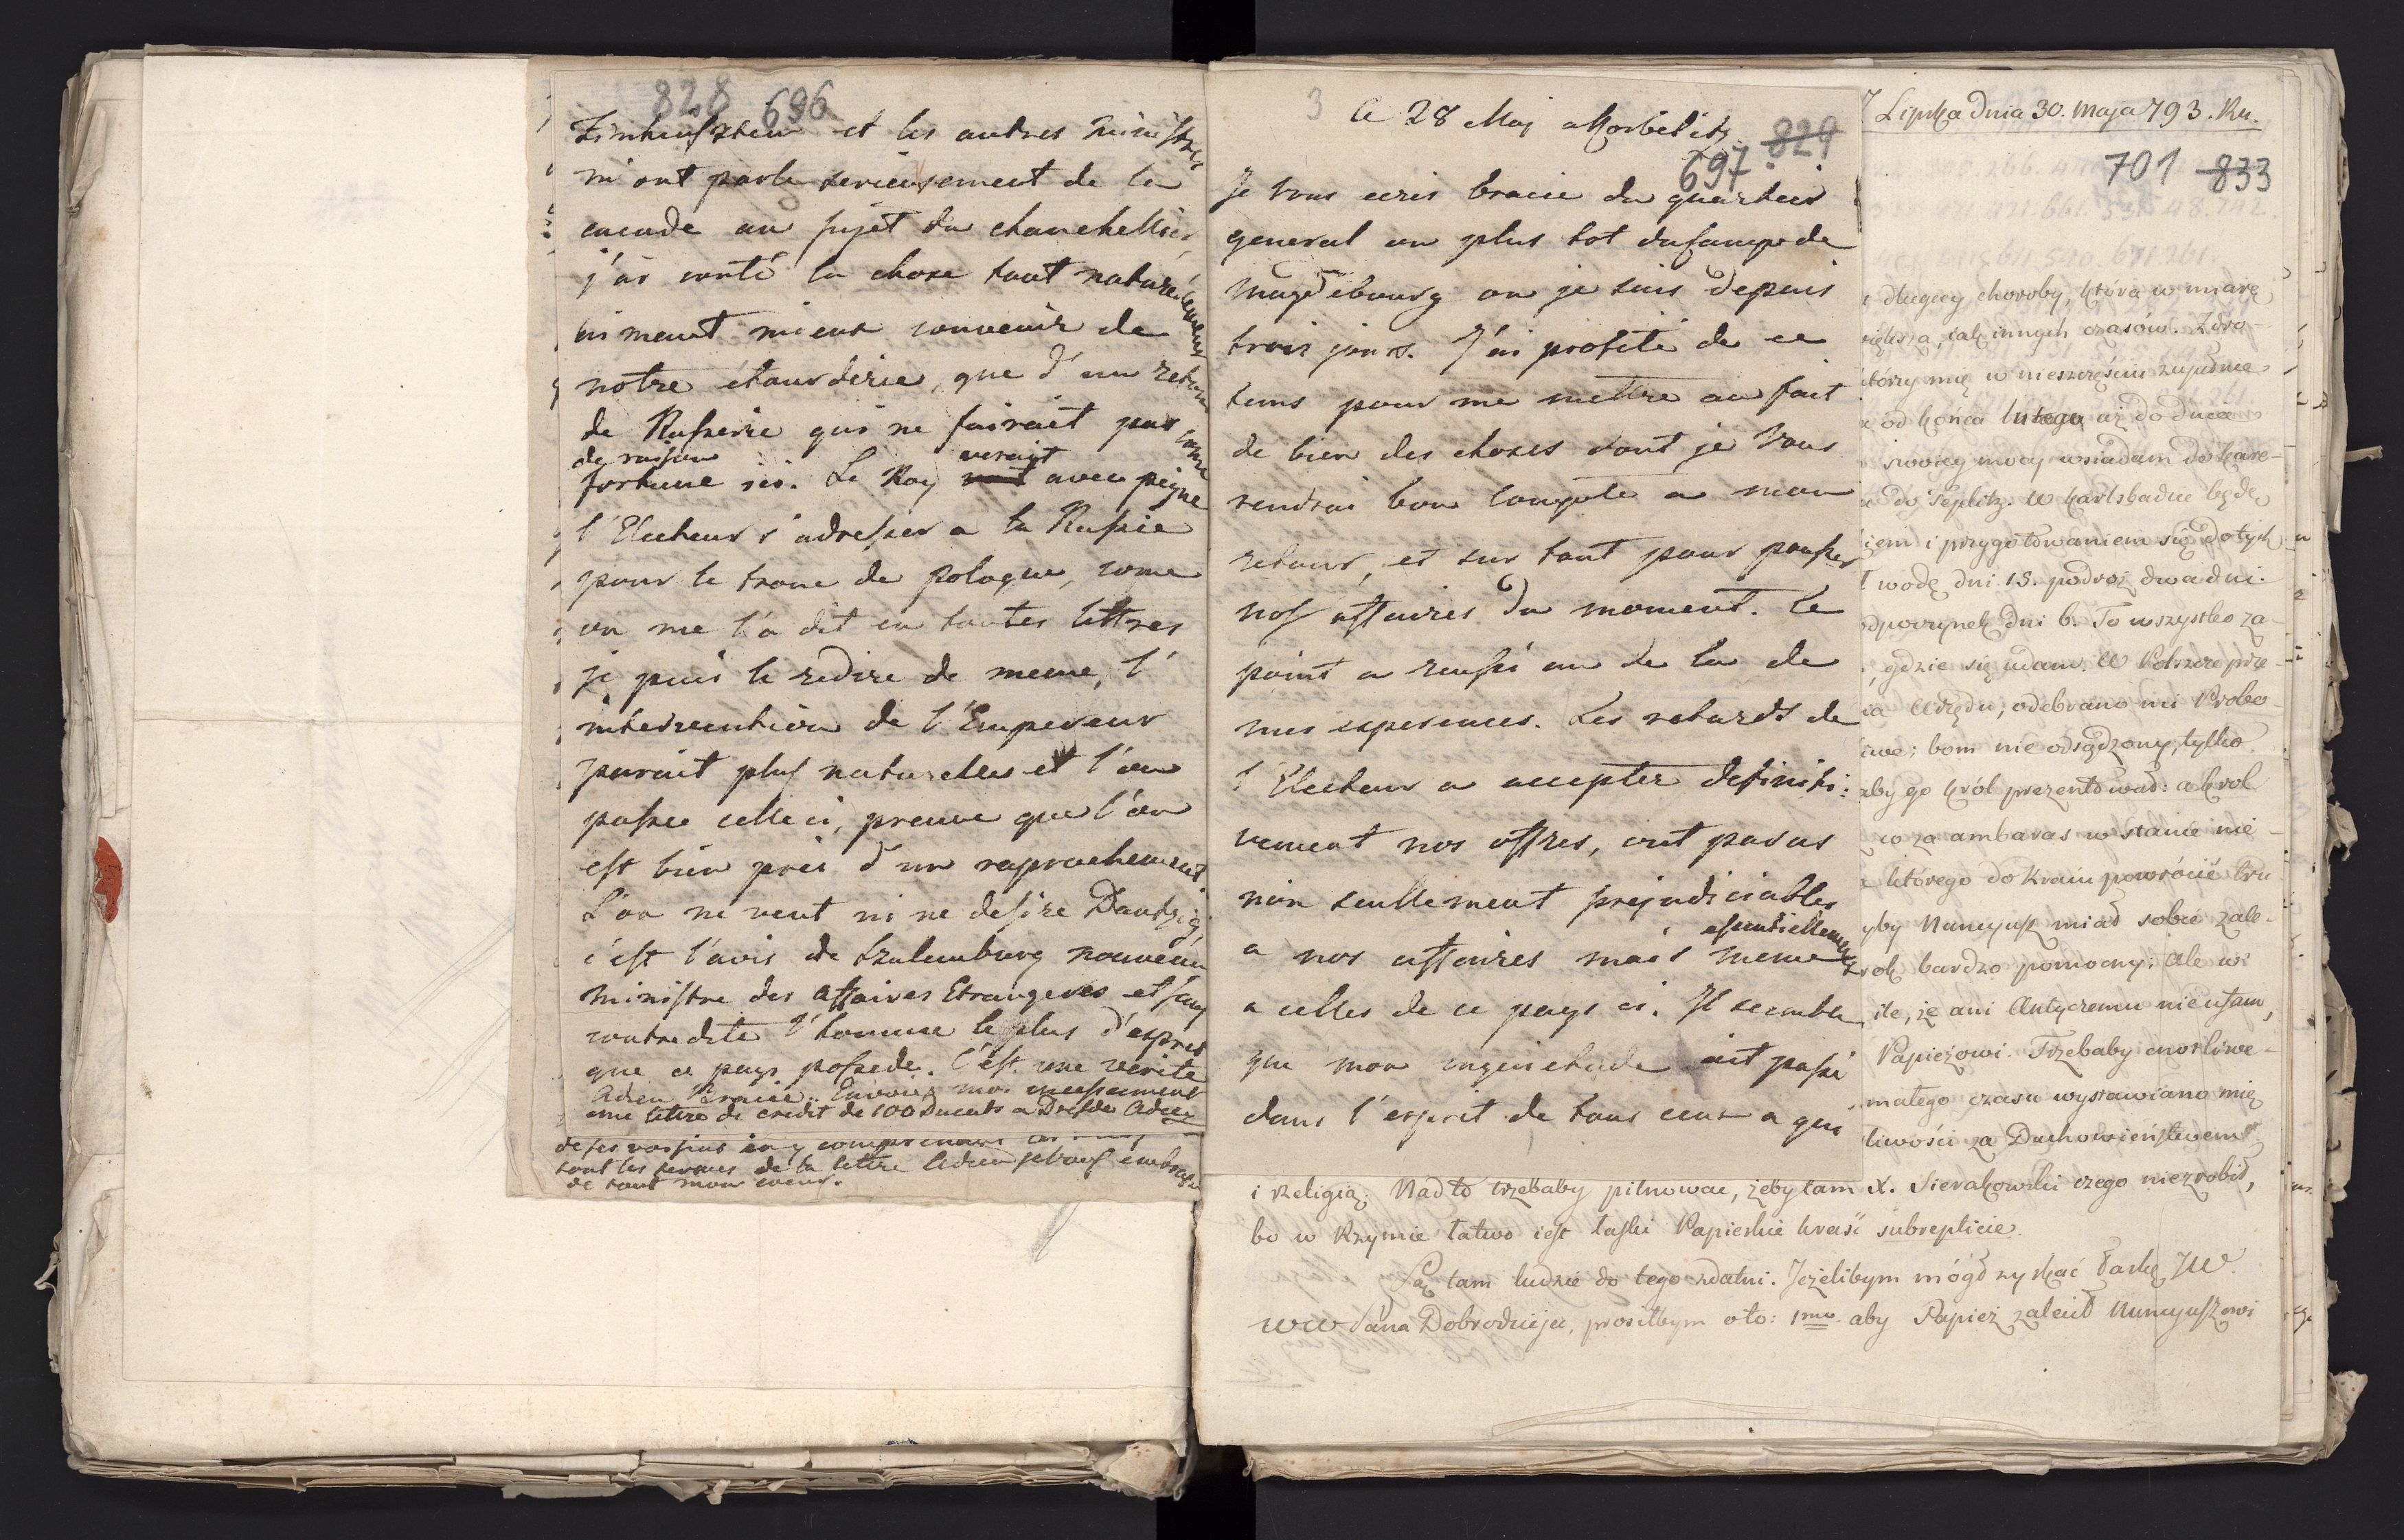 828 696
et les autres ministres
m'ont parlé serieusement de la
cacade au sujet du chanchellier
j'ai conté la chose tout naturellement
aiment mieux convenir de
notre étourderie, que d'un retour
de Russerie qui ne fairait pas
de raison
fortune ici. Le Roy veroit avec peigne
l'Electeur s'adresser a la Russie
pour le trone de pologne, come
on me l'a dit en toutes lettres
je puis le redire de meme, l'
intervention de l'Empereur
parait plus naturelle et l'on
passe celle ci, preuve que l'on
est bien pres d'un raprochement.
L'on ne veut ni ne desire Dantzig
c'est l'avis de Szulemburg nouveau
ministre des Affaires Etrangeres et sans
contredite l'homme le plus d'esprit
que ce pays possede. C'est une verité
Adieu Envoies moi incessament
une lettre de credit de 100 Ducats a Dresde Adieu
de ses voisins en y comprenant
sont les termes de la lettre Adieu je vous embrasse
de tout mon coeur.
3 Ce 28 Maj a Korbelitz. 829
697
Je vous ecris du quartier
general ou plus tot du campe de
Magdebourg ou je suis depuis
trois jours. J'ai profité de ce
tems pour me mettre au fait
de bien des choses dont je vous
rendrai bon compte a mon
retour, et sur tout pour pousser
nos affaires du moment. Ce
point a reussi au de la de
mes esperences. Les retards de
l'Electeur a accepter definiti:
vement nos offres, ont parus
non seullement prejudiciables
essentiellement
a nos affaires mais meme
a celles de ce pays ci. Il semble
que mon inquietude ait passé
dans l'esprit de tous ceux a qui
Lipska dnia 30. Maja 793. Ru.
701 833
długiey choroby, która w miarę
iak innych czasów. Zdro-
tórzy mię w nieszczęściu zupełnie
od końca lutego aż do dnia
swoiey mocy wsiadam do Kare-
do Teplitz. W Karlsbadzie będę
iem i przygotowaniem się do tych
wodę dni 15. podróż dwa dni.
dpoczynek dni 6. To wszystko za-
gdzie się udam. W Polszcze prze-
Urzędu, odebrano mi Probo-
bom nie odsądzony, tylko
aby go Król prezentował: a Krol
za ambaras w stanie nie-
którego do Kraiu powrócić tru
yby Nuncyusz miał sobie zale-
rok bardzo pomocny: Ale w
ile, że ani Antyczemu nie ufam,
Papieżowi. Trzebaby
małego czasu wystawiano mię
liwości za Duchowieństwem
i religią. Nadto trzebaby pilnować, żeby tam X. Sierakowski czego niezrobił,
bo w Rzymie łatwo iest łaski Papieskie kraść subrepticie.
Są tam ludzie do tego zdatni. Jeżelibym mógł zyskać łaskę JW.
WW Pana Dobrodzieja, prosiłbym o to: 1mo aby Papież zalecił Nuncyuszowi